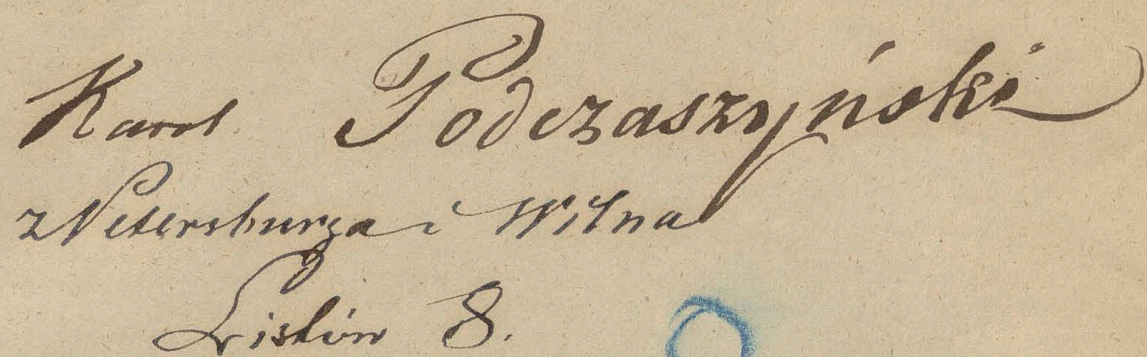 Karol Podczaszyński
z Petersburga i Wilna
Listów 8.